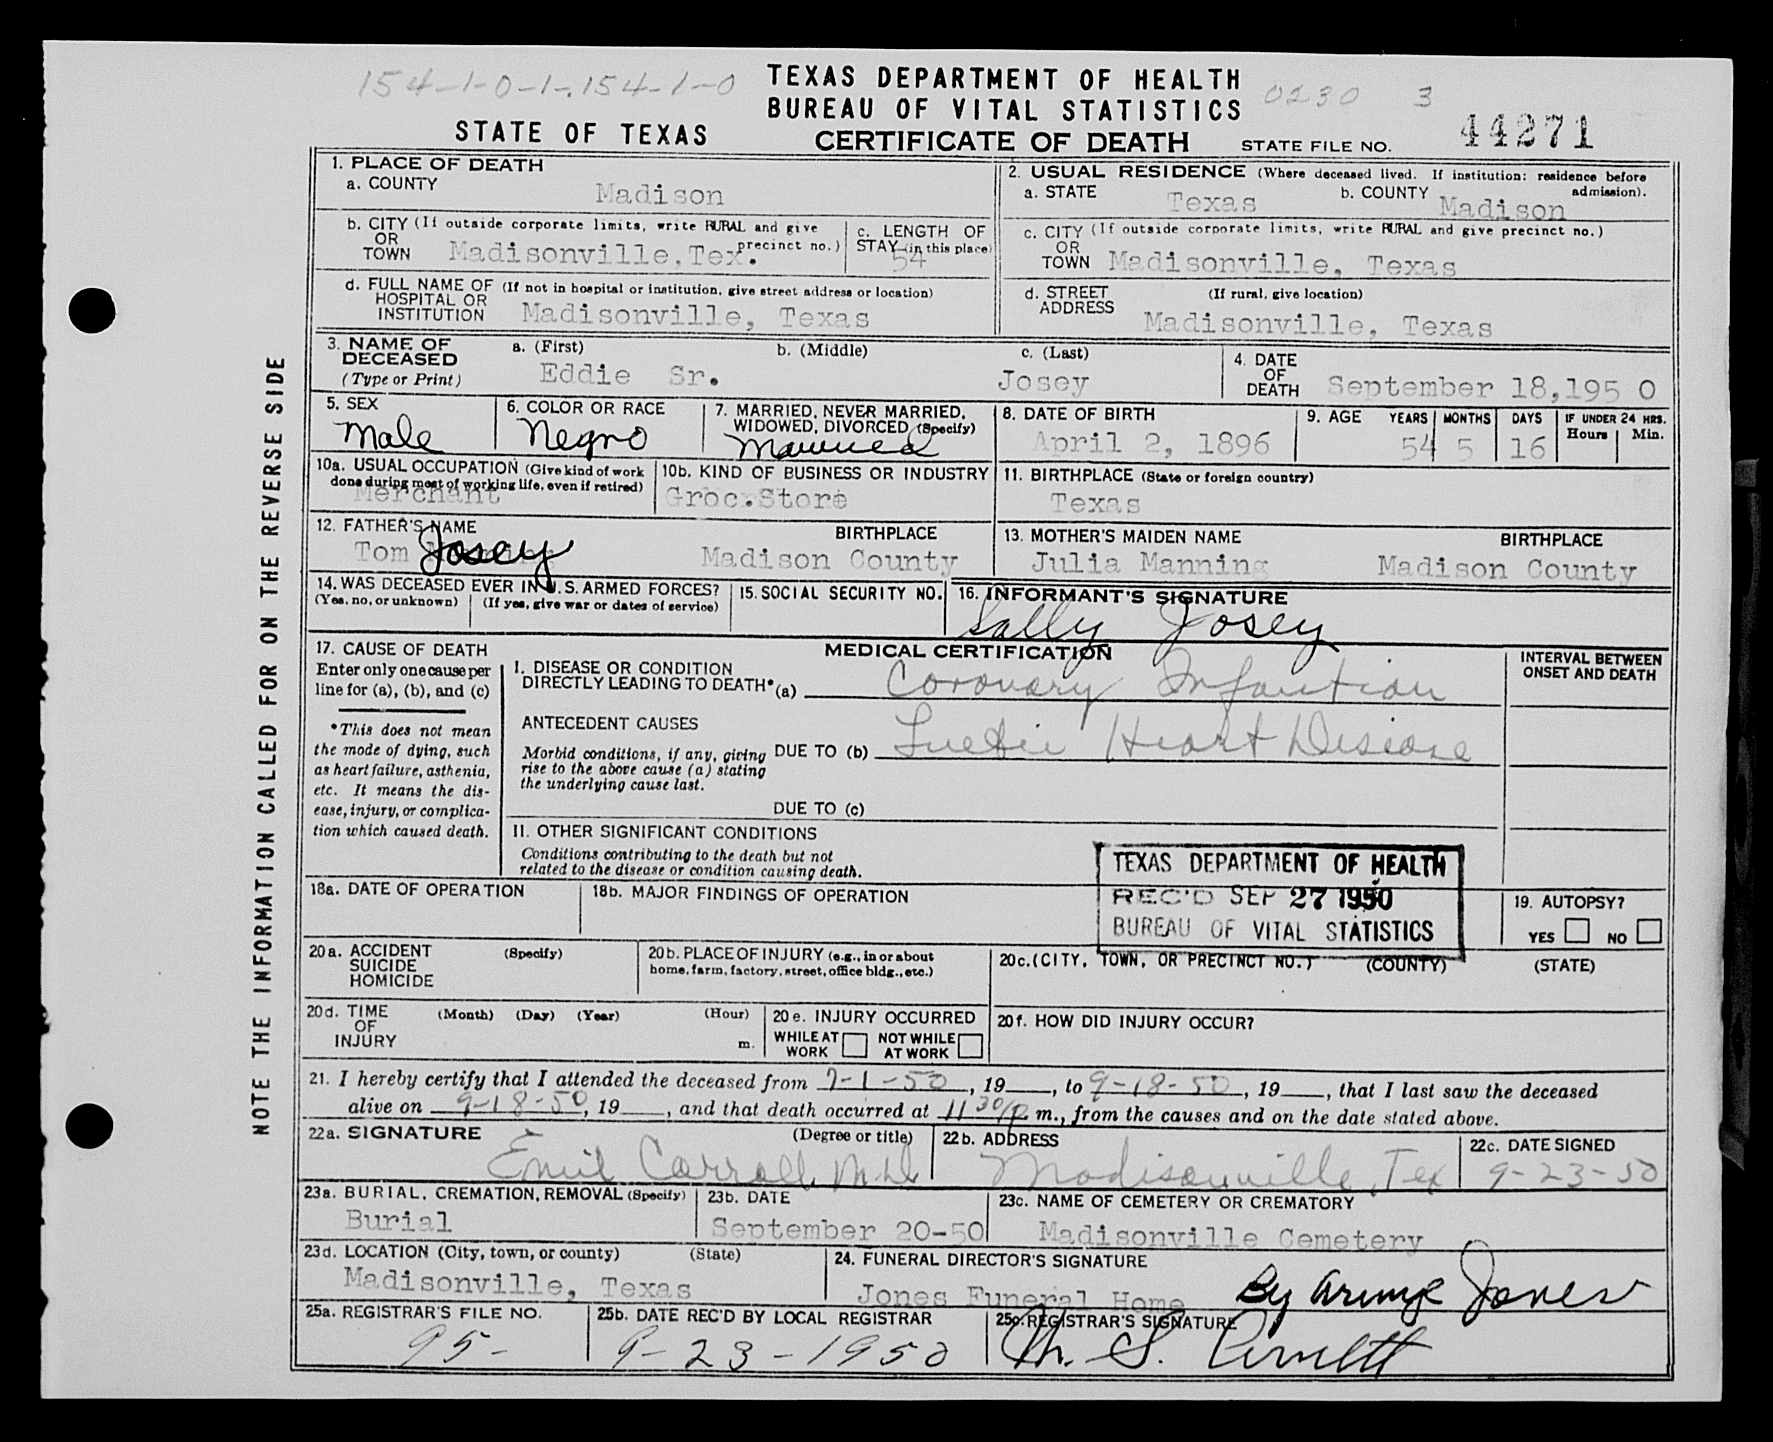 154-1-0-1-.154-1-0
TEXAS DEPARTMENT OF HEALTH
BUREAU OF VITAL STATISTICS
0230 3
STATE OF TEXAS
CERTIFICATE OF DEATH
STATE FILE NO. 44271
NOTE THE INFORMATION CALLED FOR ON THE REVERSE SIDE
1. PLACE OF DEATH
a. COUNTY
Madison
2. USUAL RESIDENCE (Where deceased lived. If institution: residence before admission).
a. STATE Texas b. COUNTY Madison
b. CITY (If outside corporate limits, write RURAL and give precinct no.)
OR
TOWN Madisonville, Tex.
c. LENGTH OF
STAY (in this place)
54
c. CITY (If outside corporate limits, write RURAL and give precinct no.)
OR
TOWN Madisonville, Texas
d. FULL NAME OF (If not in hospital or institution, give street address or location)
HOSPITAL OR
INSTITUTION Madisonville, Texas
d. STREET (If rural, give location)
ADDRESS
Madisonville, Texas
3. NAME OF
DECEASED
(Type or Print)
a. (First) b. (Middle) c. (Last)
Eddie Sr. Josey
4. DATE
OF
DEATH September 18,195 0
5. SEX
Male
6. COLOR OR RACE
Negro
7. MARRIED, NEVER MARRIED,
WIDOWED, DIVORCED (Specify)
Married
8. DATE OF BIRTH
April 2, 1896
9. AGE YEARS MONTHS DAYS IF UNDER 24 HRS.
Hours Min.
54 5 16
10a. USUAL OCCUPATION (Give kind of work
done during most of working life, even if retired)
Merchant
10b. KIND OF BUSINESS OR INDUSTRY
Groc.Store
11. BIRTHPLACE (State or foreign country)
Texas
12. FATHER'S NAME BIRTHPLACE
Tom Josey Madison County
13. MOTHER'S MAIDEN NAME BIRTHPLACE
Julia Manning Madison County
14. WAS DECEASED EVER IN U. S. ARMED FORCES?
(Yes, no, or unknown) (If yes, give war or dates of service)
15. SOCIAL SECURITY NO.
16. INFORMANT'S SIGNATURE
Sally Josey
17. CAUSE OF DEATH
Enter only one cause per
line for (a), (b), and (c)
*This does not mean
the mode of dying, such
as heart failure, asthenia,
etc. It means the dis-
ease, injury, or complica-
tion which caused death.
MEDICAL CERTIFICATION
I. DISEASE OR CONDITION
DIRECTLY LEADING TO DEATH* (a) Coronary Infarction
ANTECEDENT CAUSES
Morbid conditions, if any, giving
rise to the above cause (a) stating
the underlying cause last.
DUE TO (b) Luetic Heart Disease
DUE TO (c)
II. OTHER SIGNIFICANT CONDITIONS
Conditions contributing to the death but not
related to the disease or condition causing death.
INTERVAL BETWEEN
ONSET AND DEATH
TEXAS DEPARTMENT OF HEALTH
REC'D SEP 27 1950
BUREAU OF VITAL STATISTICS
18a. DATE OF OPERATION
18b. MAJOR FINDINGS OF OPERATION
19. AUTOPSY?
YES NO
20a. ACCIDENT (Specify)
SUICIDE
HOMICIDE
20b. PLACE OF INJURY (e.g., in or about
home, farm, factory, street, office bldg., etc.)
20c. (CITY, TOWN, OR PRECINCT NO.) (COUNTY) (STATE)
20d. TIME (Month) (Day) (Year) (Hour)
OF
INJURY m.
20e. INJURY OCCURRED
WHILE AT WORK NOT WHILE AT WORK
20f. HOW DID INJURY OCCUR?
21. I hereby certify that I attended the deceased from 7-1-50, 19__, to 9-18-50, 19__, that I last saw the deceased
alive on 9-18-50, 19__, and that death occurred at 11 30/P m., from the causes and on the date stated above.
22a. SIGNATURE (Degree or title)
Emil Carroll, M.D
22b. ADDRESS
Madisonville, Tex
22c. DATE SIGNED
9-23-50
23a. BURIAL, CREMATION, REMOVAL (Specify)
Burial
23b. DATE
September 20-50
23c. NAME OF CEMETERY OR CREMATORY
Madisonville Cemetery
23d. LOCATION (City, town, or county) (State)
Madisonville, Texas
24. FUNERAL DIRECTOR'S SIGNATURE
Jones Funeral Home By Jones
25a. REGISTRAR'S FILE NO.
95-
25b. DATE REC'D BY LOCAL REGISTRAR
9-23-1950
25c. REGISTRAR'S SIGNATURE
M. S.